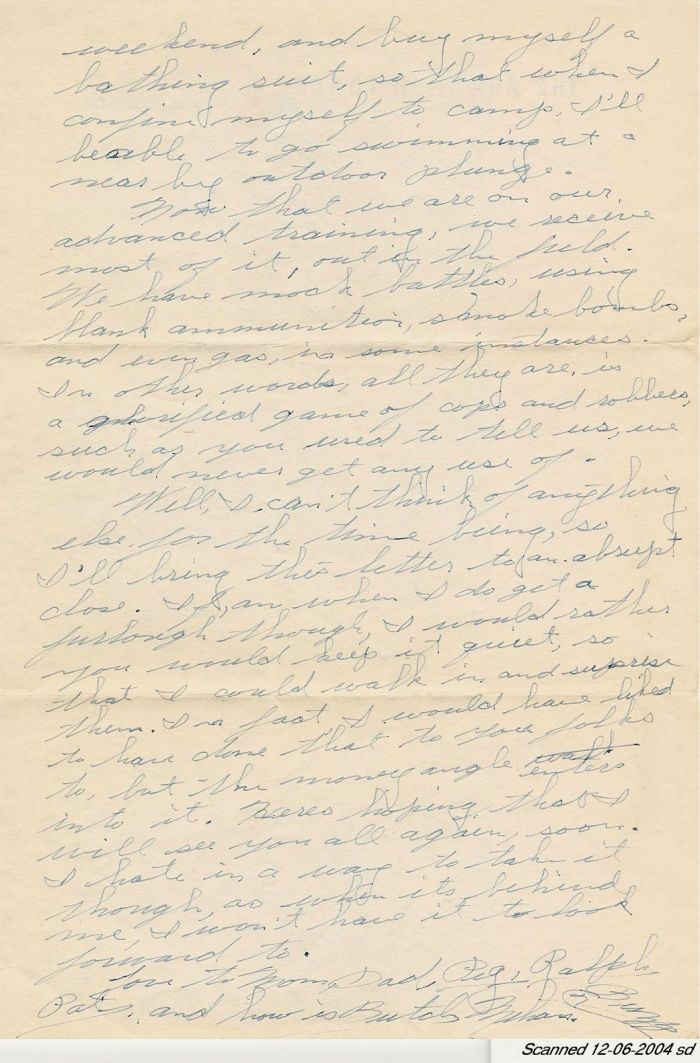 weekend, and buy myself a
bathing suit, so that when I
confine myself to camp, I'll
be able to go swimming at a
near by outdoor plunge.
Now that we are on our
advanced training, we receive
most of it, out in the field.
We have mock battles, using
blank ammunition, smoke bombs,
and even gas, in some instances.
In other words, all they are, is
a glorified game of cops and robbers,
such as you used to tell us, we
would never get any use of.
Well, I can't think of anything
else for the time being, so
I'll bring this letter to an abrupt
close. If, an when I do get a
furlough though, I would rather
you would keep it quiet, so
that I could walk in and suprise
them. In fact, I would have liked
to have done that to you folks
to, but the money angle
enters
into it. Heres hoping that I
will see you all again, soon.
I hate in a way to take it
though, as when its behind
me, I won't have it to look
forward to.
Love to Mom, Dad, Peg, Ralph
Pats, and how is Butch
Scanned 12-06-2004 sd